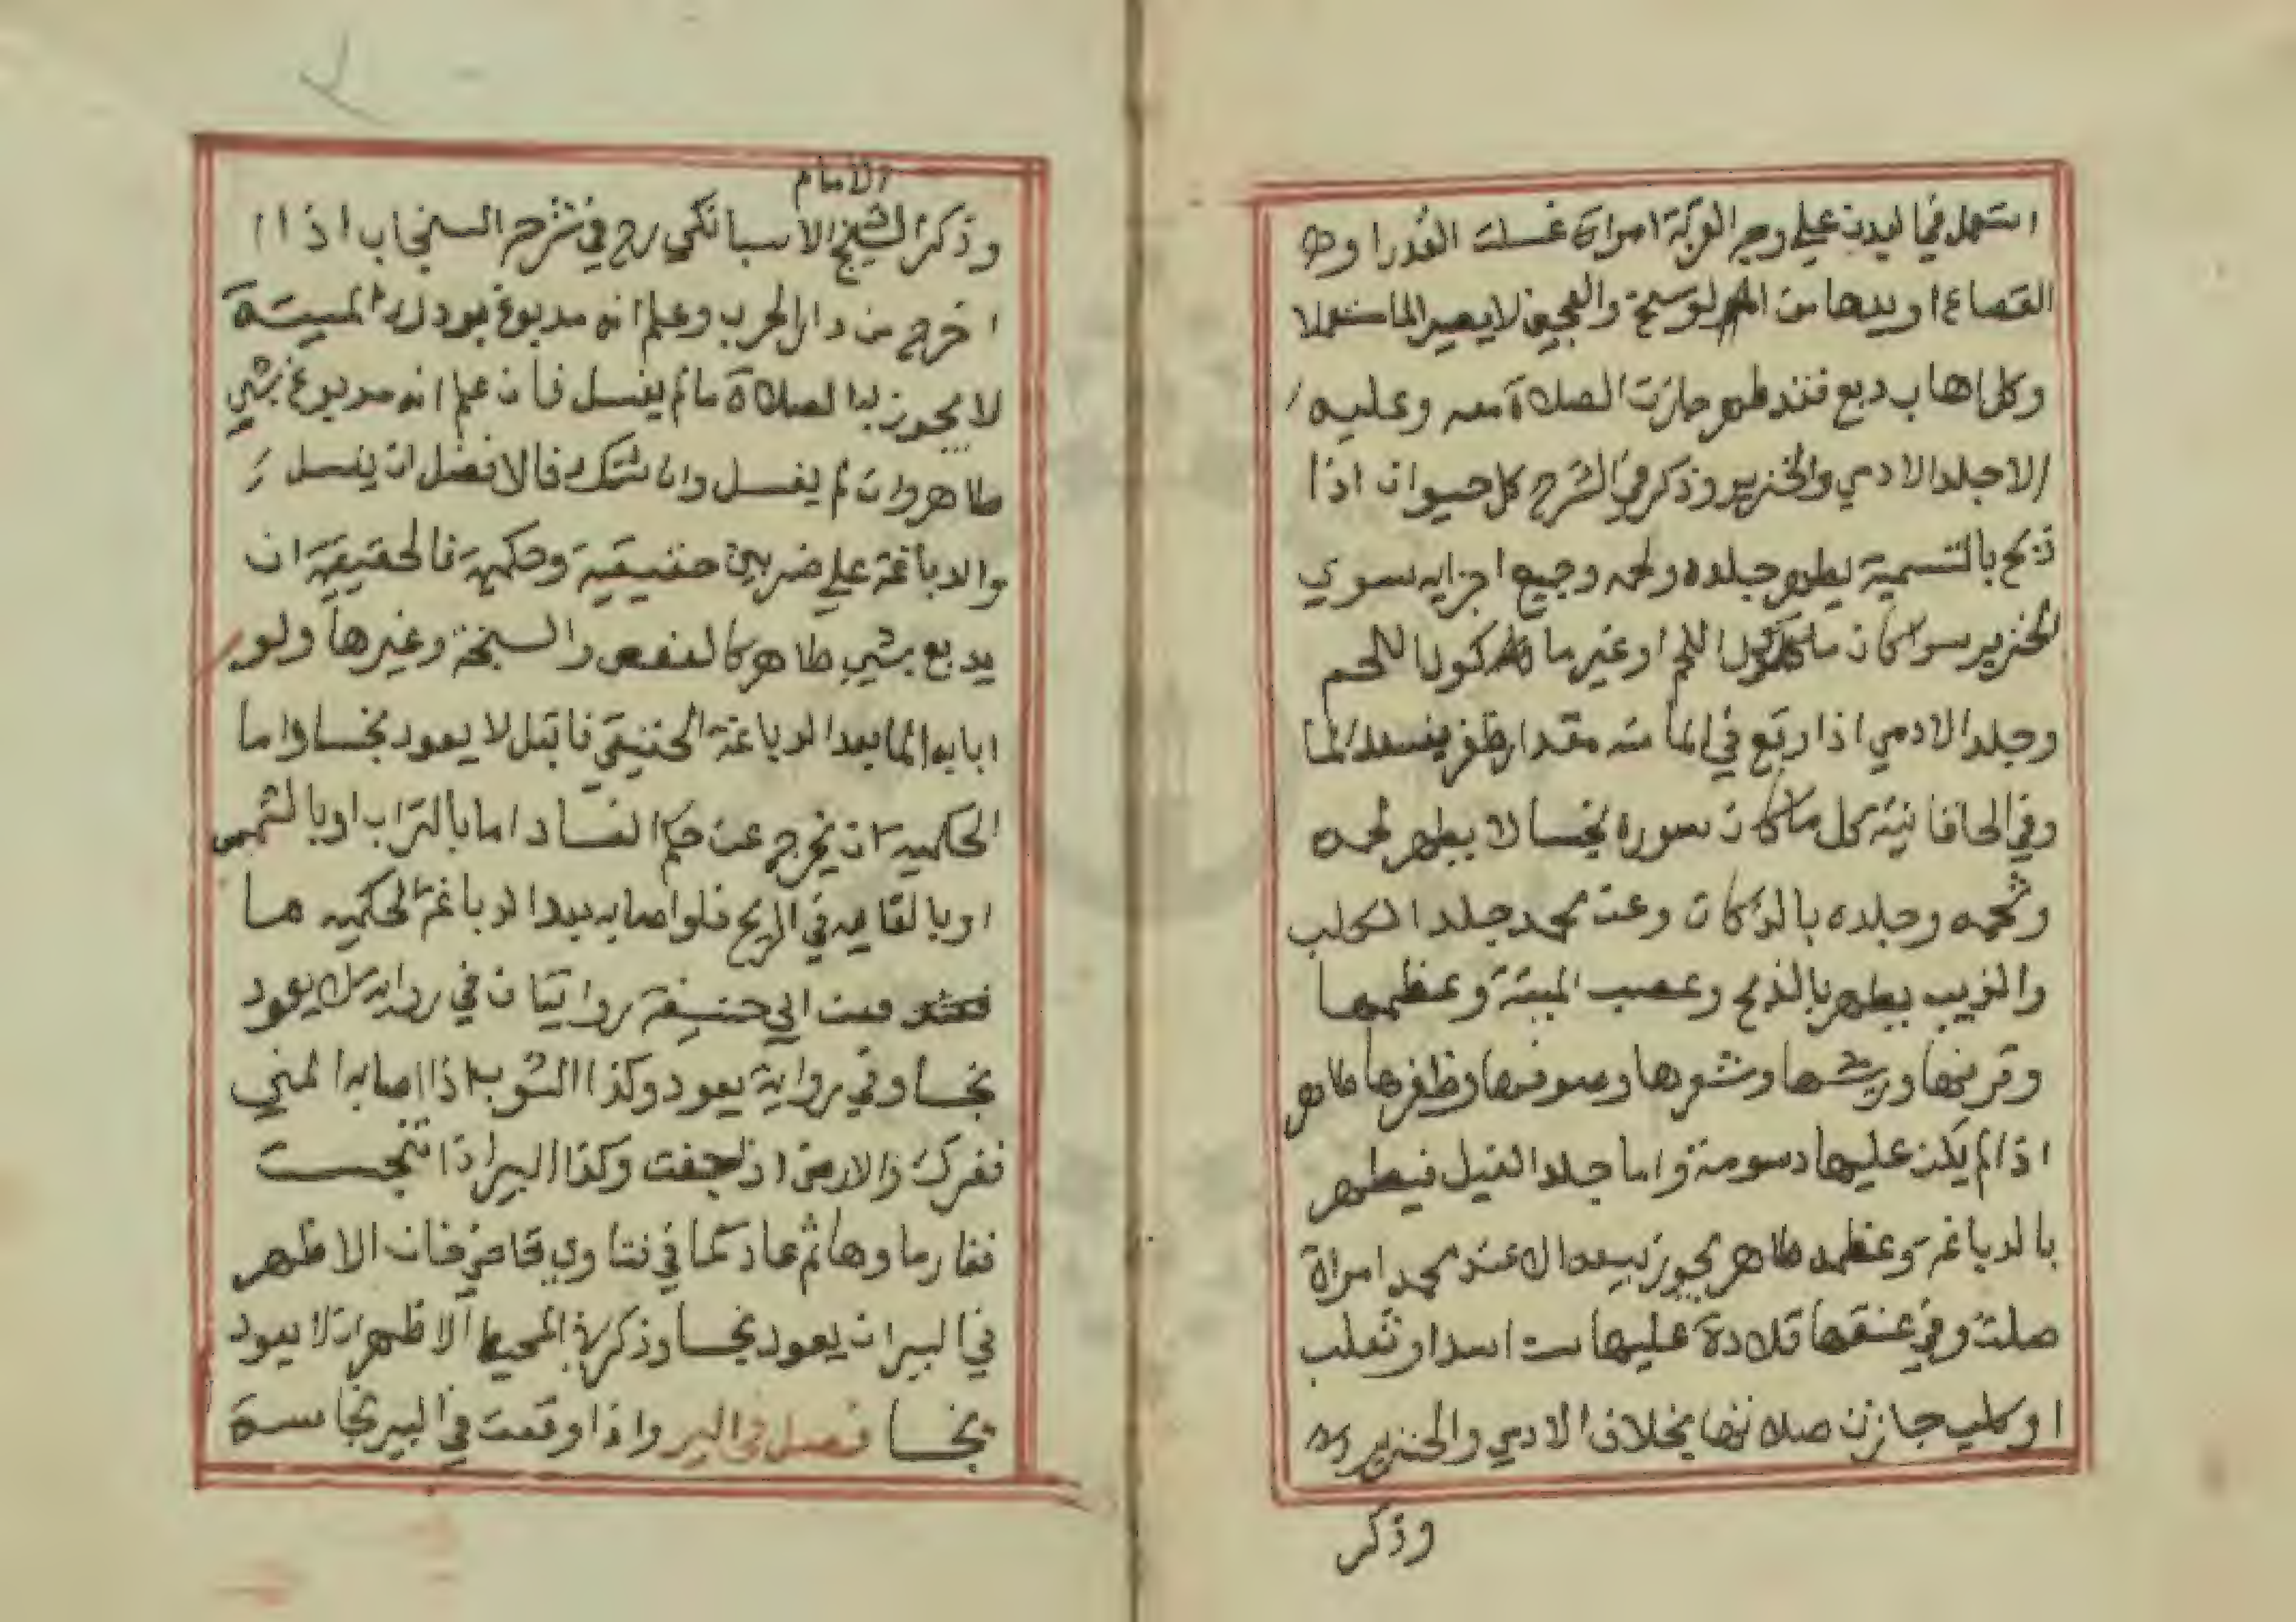 استعمل في البدن علي وجه القربة امراة غسلت القدر او
القصاع او يدها من الوسخ والعجين لا يصير الما مستعملا
وكل اهاب دبغ فقد طهر جازت الصلاة معه وعليه
الا جلد الادمي والخنزير وذكر في الشرح كل حيوان اذا
ذبح بالتسمية يطهر جلده ولحمه وجميع اجزايه سوي
الخنزير سوا كان ماكول اللحم او غير ماكول اللحم
وجلد الادمي اذا وقع في الما منه مقدار ظفر يفسد الما
وفي الخاقانية كل ما كان سوره نجسا لا يطهر لحمه
وشحمه وجلده بالذكاة وعند محمد جلد الكلب
والذيب يطهر بالذبح وعصب الميتة وعظمها
وقرنها وريشها وشعرها وصوفها وظفرها طاهر
اذا لم يكن عليها دسومة واما جلد الفيل فيطهر
بالدباغة وعظمه طاهر يجوز بيعه الا عند محمد امراة
صلت وفي عنقها قلادة عليها سن اسد او ثعلب
او كلب جازت صلاتها بخلاف الادمي والخنزير
وذكر
الامام
وذكر الشيخ الاسبانكي رح في شرح السنجاب اذا
اخرج من دار الحرب وعلم انه مدبوغ بودك الميتة
لا يجوز به الصلاة ما لم يغسل فان علم انه مدبوغ بشي
طاهر وان لم يغسل وان شك فالافضل ان يغسل
والدباغة علي ضربين حقيقية وحكمية فالحقيقية ان
يدبغ بشي طاهر كالعفص والسبخة وغيرها ولو
اصابه الما بعد الدباغة الحقيقي فابتل لا يعود نجسا واما
الحكمية ان يخرج عن حكم الفساد اما بالتراب او بالشمس
او بالقايه في الريح فلو اصابه بعد الدباغة الحكميه ما
فعن ابي حنيفة روايتان في رواية لا يعود
نجسا وفي رواية يعود وكذا الثوب اذا اصابه المني
ففرك والارض اذا جفت وكذا البير اذا تنجست
فغار ماوها ثم عاد كما في فتاوي قاضي خان الاظهر
في البير ان يعود نجسا وذكر في المحيط الاظهر ان لا يعود
نجسا فصل في البير واذا وقعت في البير نجاسة